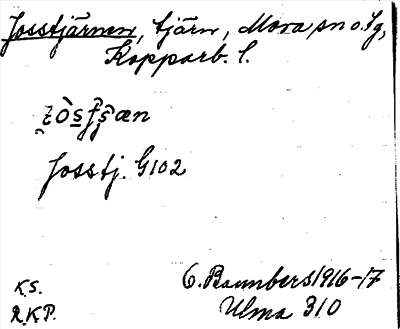 Josstjärnen, tjärn, Mora sn o. tg,
Kopparb. l.
Josstj. G102
K.S.
R.K.P.
1916-17
Ulma 310